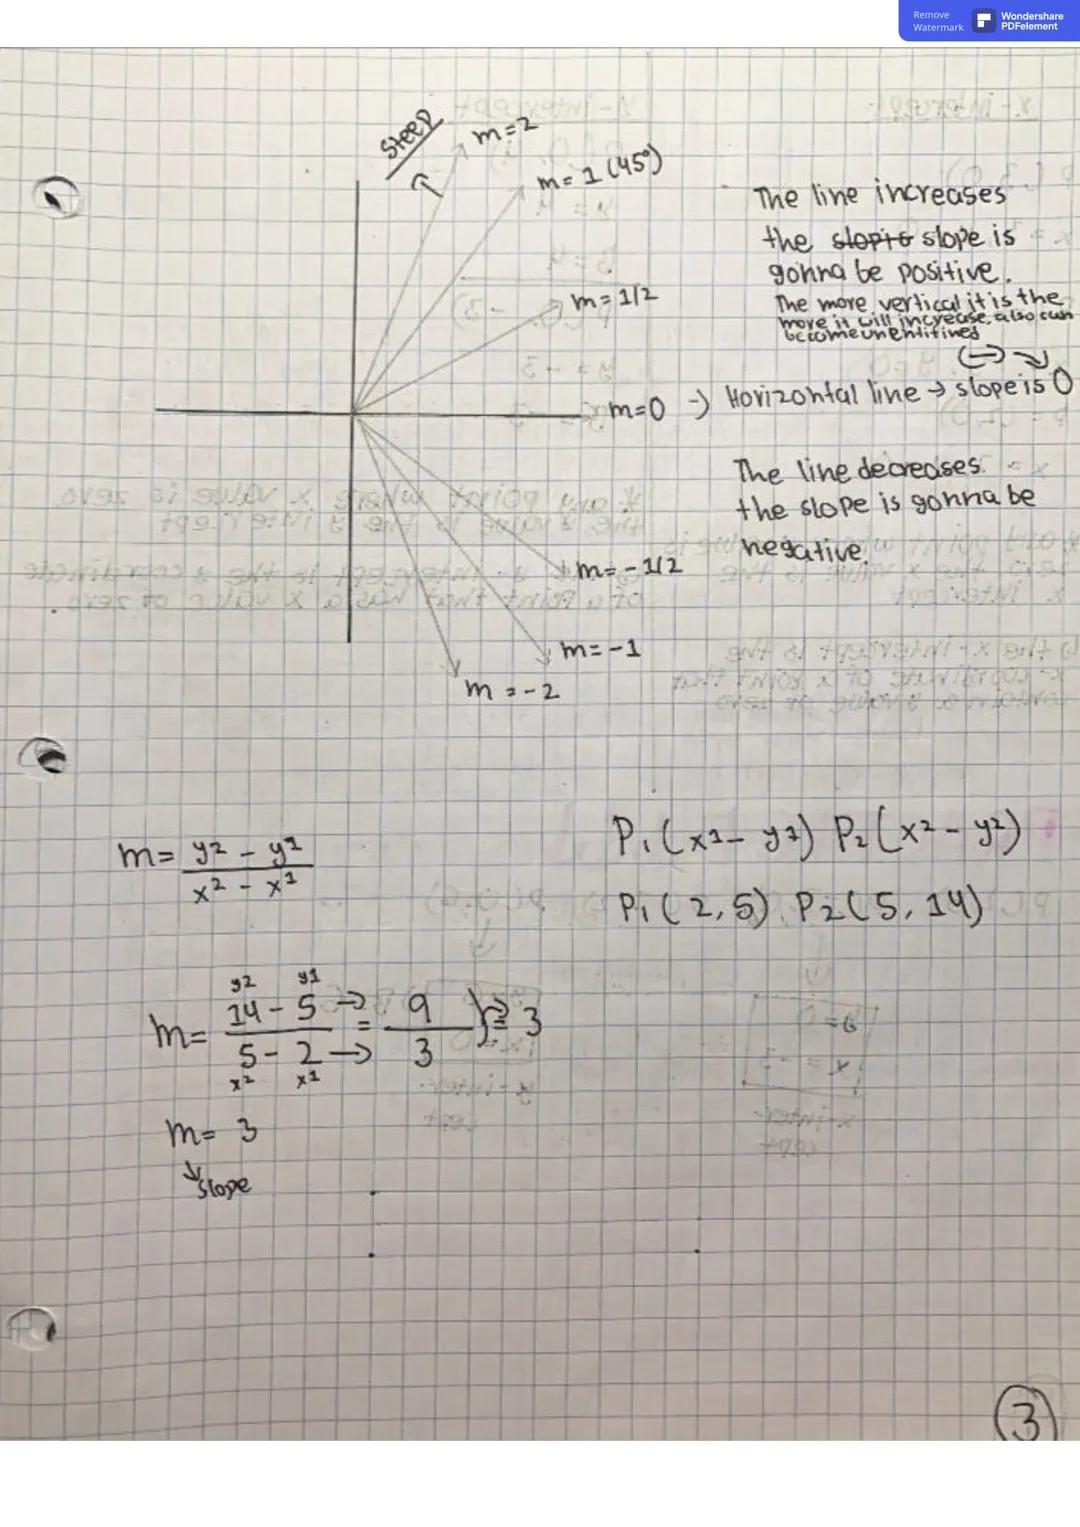 Remove
Watermark
Wondershare
PDFelement
steep
m=2
m=1 (45°)
m=1/2
m=0 → Horizontal line → slope is 0
m=-1/2
m=-1
m=-2
The line increases
the slope is
gonna be positive.
The more vertical it is the
more it will increase, also can
become
The line decreases
the slope is gonna be
negative.
m= y2 - y1
x2 - x1
P1(x1- y1) P2(x2 - y2)
P1(2,5) P2(5,14)
y2 y1
m= 14 - 5 → = 9 } = 3
5 - 2 → 3
x2 x1
m= 3
slope
3